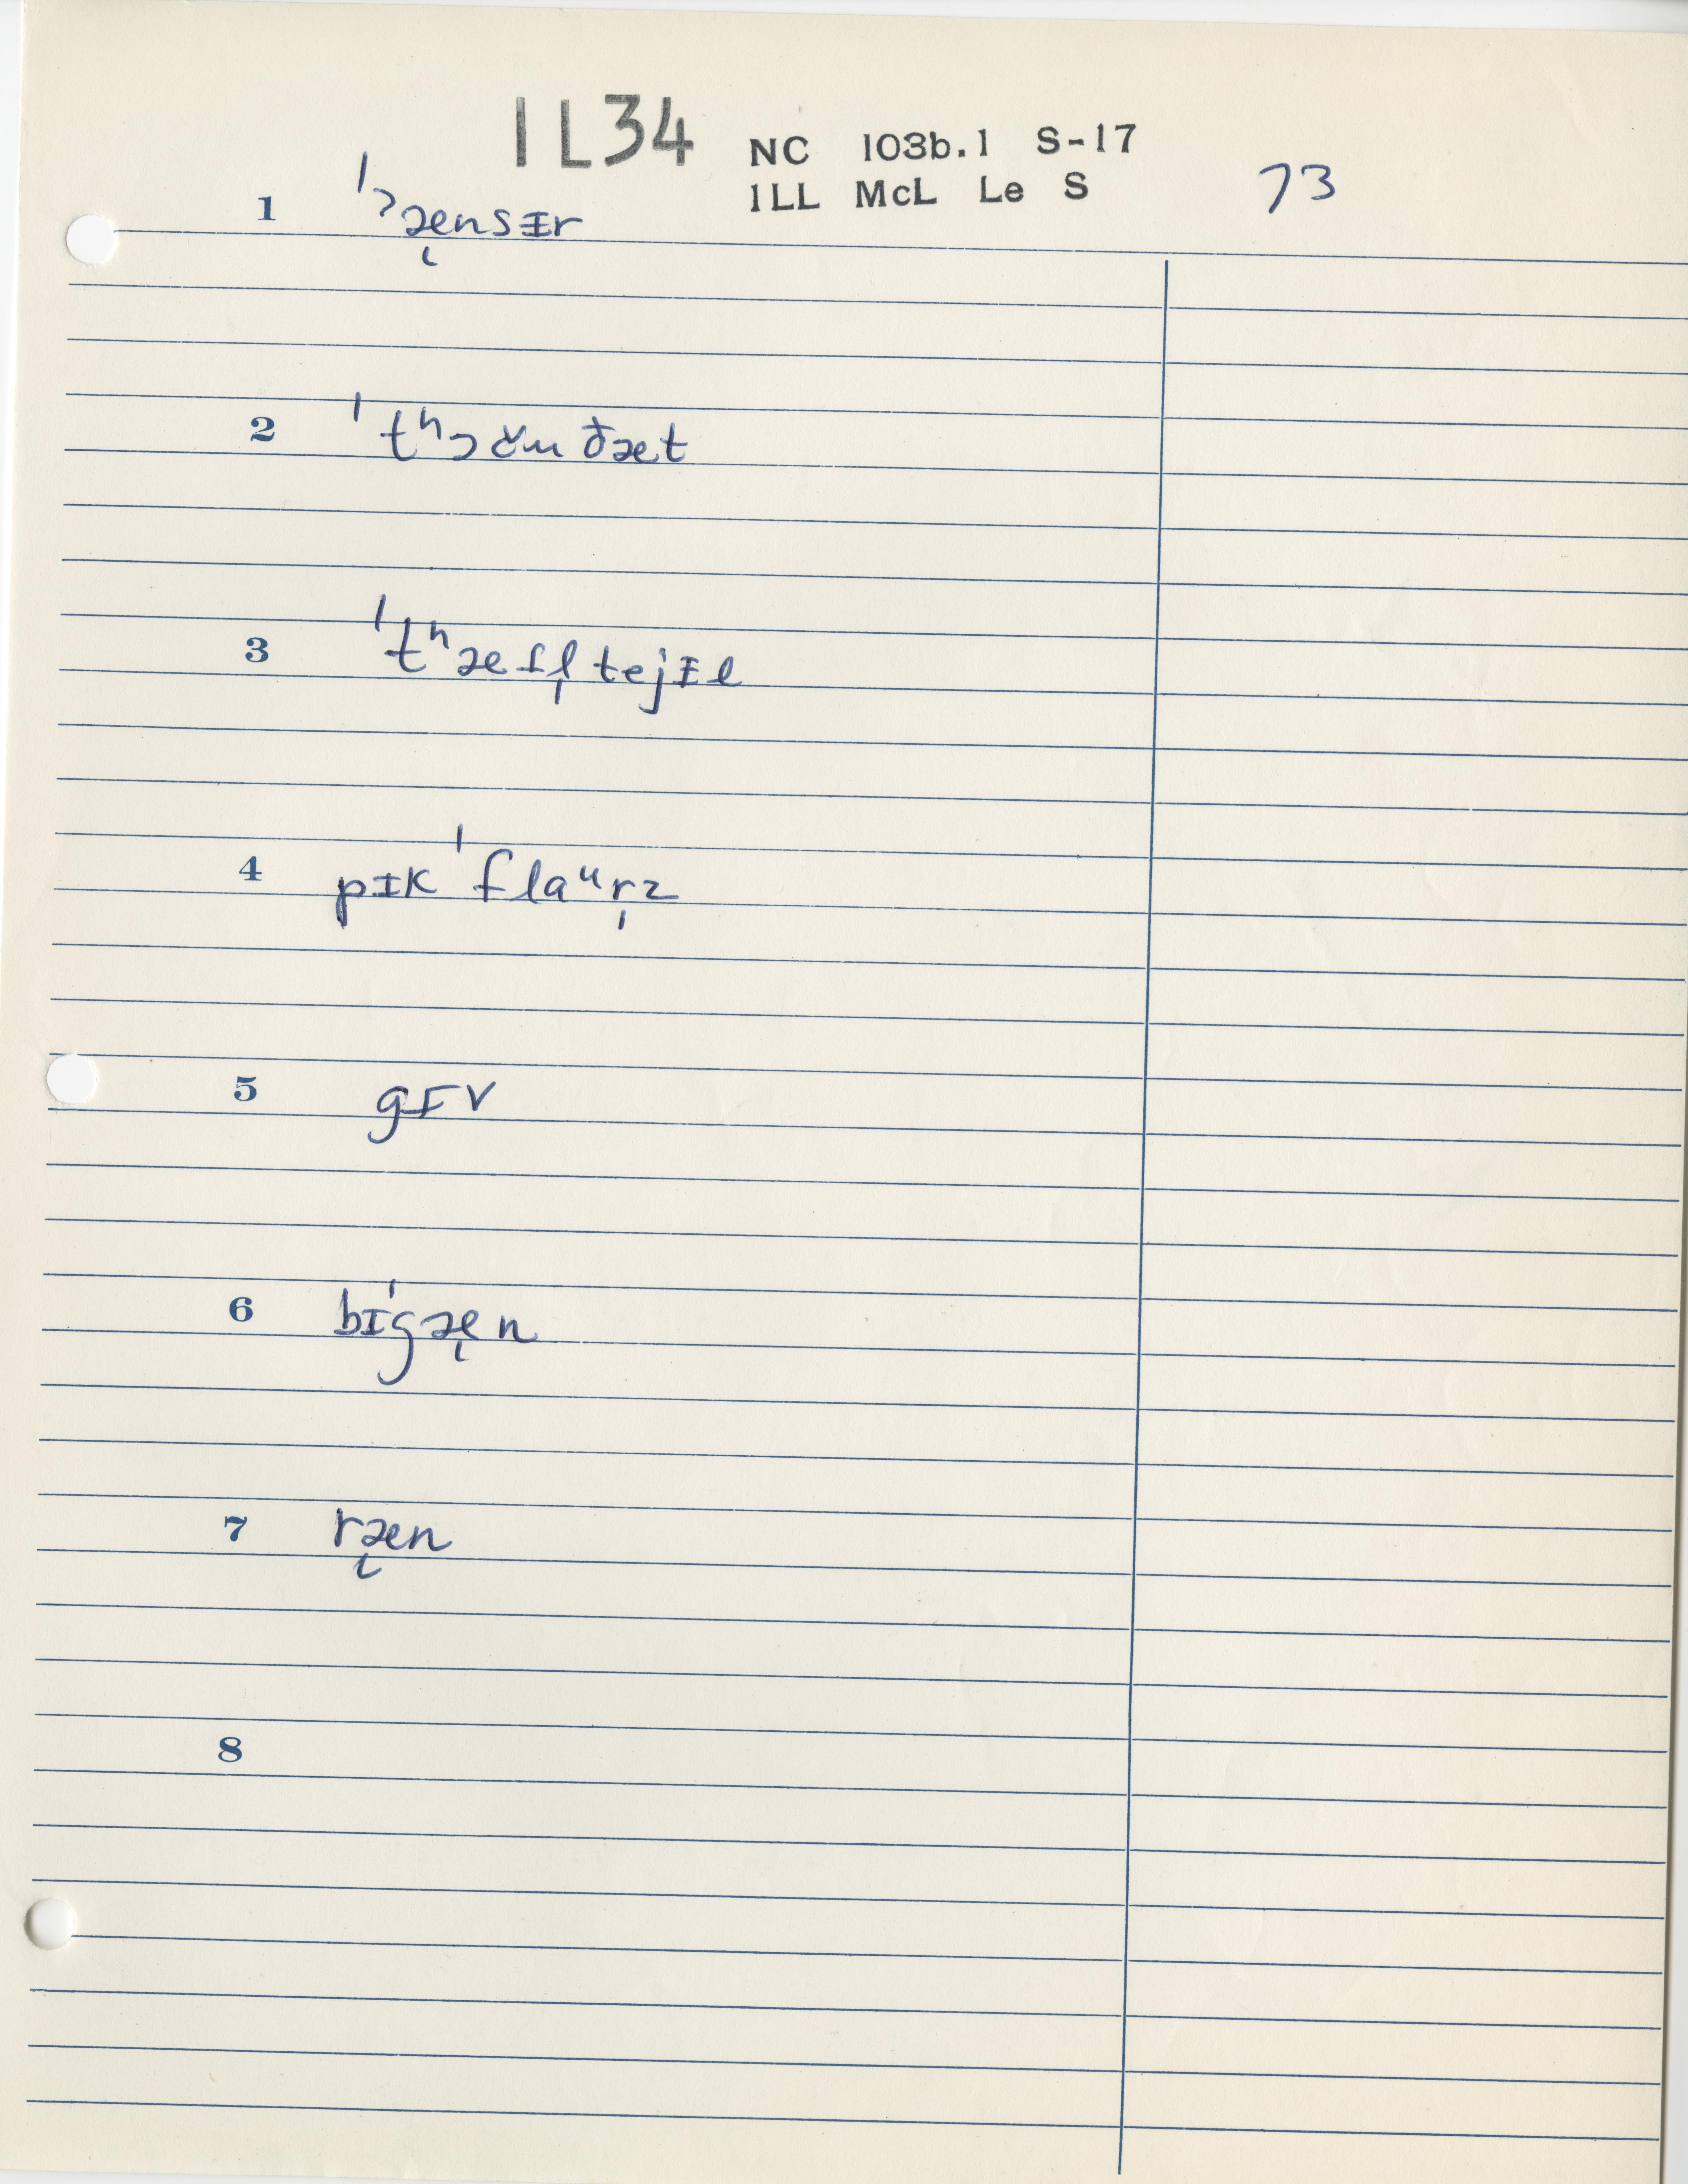 1L34 NC 103b.1 S-17
1LL McL Le S 73
1 ˈʔæ̨nsɪr
2 ˈtʰɔ
3 ˈtʰæfl̩tejɪl
4 pɪkˈflaᵘr̩z
5 gɪv
6 bɪˈgæ̨n
7 ræ̨n
8